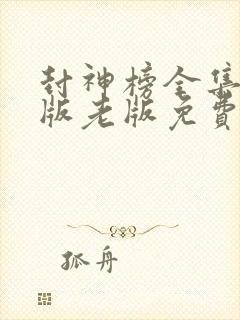 封神榜全集
版老版免费
孤舟